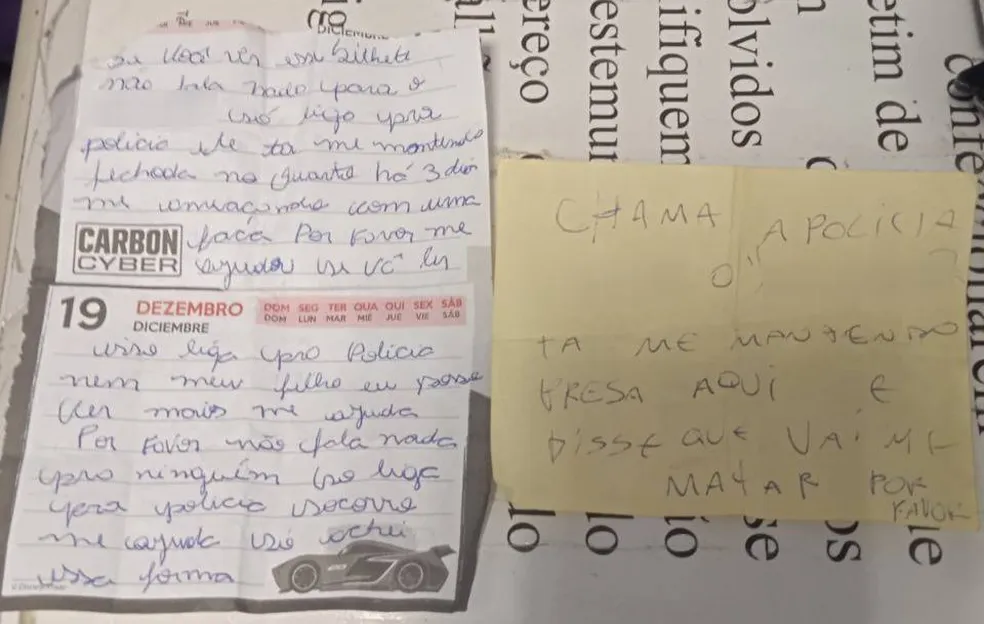 DICIEMBRE
se você ler esse bilhete
não fala nada para o
só liga pra
policia ele ta me mantendo
fechada no quarto há 3 dias
me ameaçando com uma
CARBON
CYBER
faca Por Favor me
ajudar se vc ler
19
DEZEMBRO
DICIEMBRE
DOM SEG TER QUA QUI SEX SÁB
DOM LUN MAR MIÉ JUE VIE SÁB
isso liga pro Policia
nem meu filho eu posso
ver mais me ajuda
Por Favor não fala nada
pro ninguém só liga
pera policia socorro
me ajuda só achei
essa forma
CHAMA A POLICIA
O
TA ME MANTENDO
PRESA AQUI E
DISSE QUE VAI ME
MATAR POR
FAVOR
ereço
estemu
ifiquem
olvidos
etim de
lo
lo
io
se
os
le